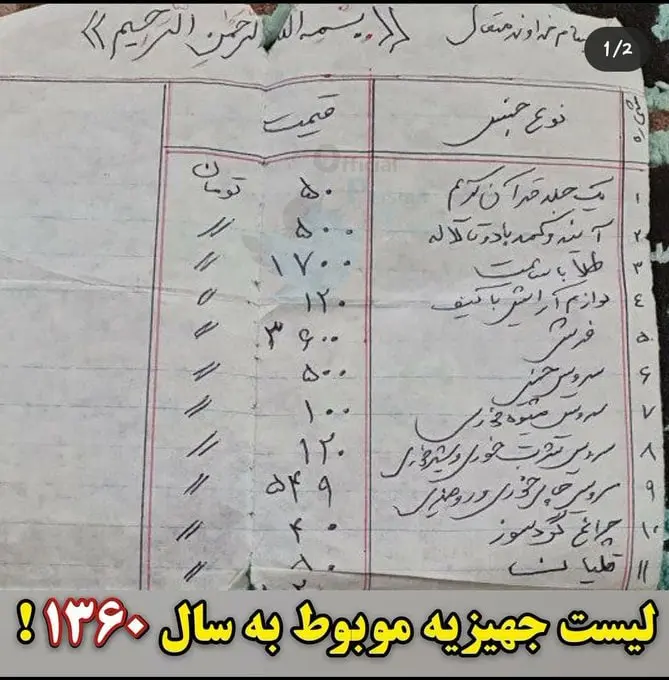 بنام خداوند متعال «بسم الله الرحمن الرحیم»
1/2
شماره نوع جنس قیمت
Official
۱ یک جلد قرآن کریم ۵۰ تومان
۲ آینه و کمد با دو تا لاله ۵۰۰ 〃
۳ طلا با ساعت ۱۷۰۰ 〃
٤ لوازم آرایش با کیف ۱۲۰ 〃
۵ فرش ۳۶۰۰ 〃
۶ سرویس چینی ۵۰۰ 〃
۷ سرویس میوه خوری ۱۰۰ 〃
۸ سرویس شربت خوری و شیرخوری ۱۲۰ 〃
۹ سرویس چای خوری و ۵۴۹ 〃
۱۰ چراغ گردسوز ۴۰ 〃
۱۱ قلیان
لیست جهیزیه موبوط به سال ۱۳۶۰ !